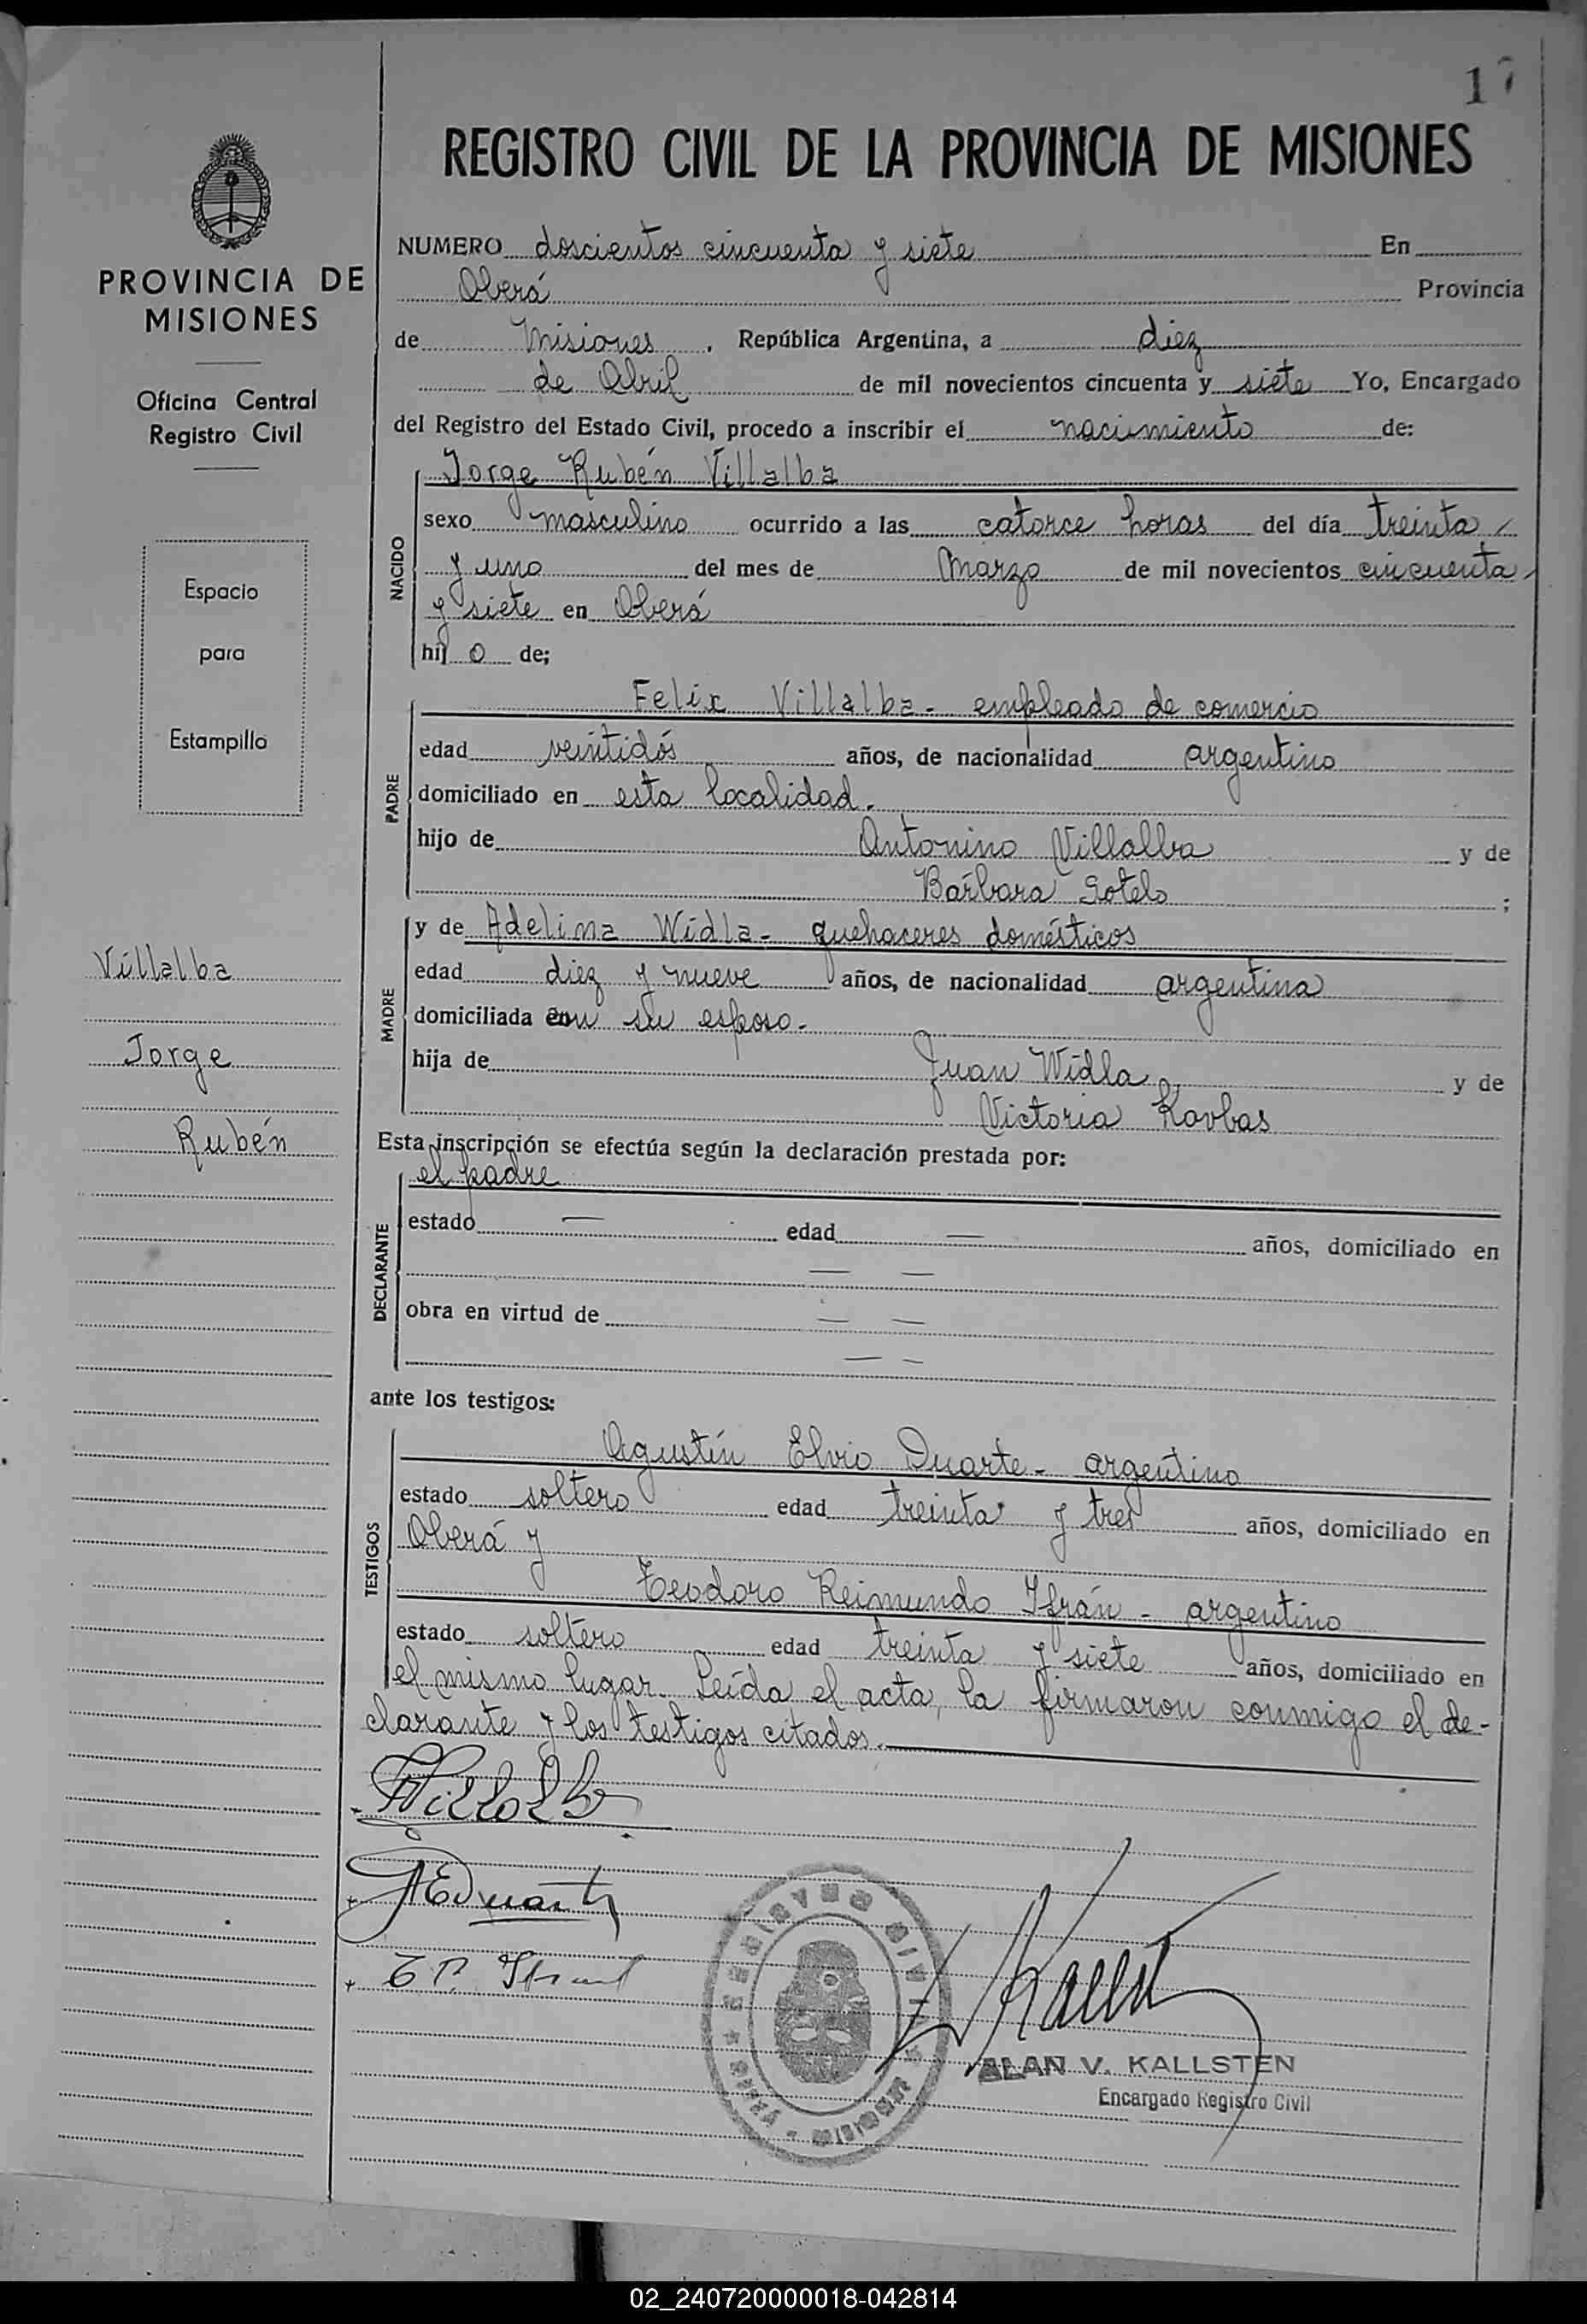 17
REGISTRO CIVIL DE LA PROVINCIA DE MISIONES
PROVINCIA DE
MISIONES
Oficina Central
Registro Civil
Espacio
para
Estampilla
Villalba
Jorge
Rubén
NUMERO doscientos cincuenta y siete En
Oberá Provincia
de Misiones, República Argentina, a diez
de Abril de mil novecientos cincuenta y siete Yo, Encargado
del Registro del Estado Civil, procedo a inscribir el nacimiento de:
NACIDO
Jorge Rubén Villalba
sexo masculino ocurrido a las catorce horas del día treinta
y uno del mes de Marzo de mil novecientos cincuenta
y siete en Oberá
hij o de;
PADRE
Felix Villalba - empleado de comercio
edad veintidós años, de nacionalidad argentino
domiciliado en esta localidad.
hijo de Antonino Villalba y de
Bárbara Sotelo ;
MADRE
y de Adelina Widla - quehaceres domésticos
edad diez y nueve años, de nacionalidad argentina
domiciliada con su esposo.
hija de Juan Widla y de
Victoria Kovbas
Esta inscripción se efectúa según la declaración prestada por:
DECLARANTE
el padre
estado — edad — años, domiciliado en
— —
obra en virtud de — —
— —
ante los testigos:
TESTIGOS
Agustín Elvio Duarte - argentino
estado soltero edad treinta y tres años, domiciliado en
Oberá y
Teodoro Reimundo Ifrán - argentino
estado soltero edad treinta y siete años, domiciliado en
el mismo lugar. Leída el acta, la firmaron conmigo el de-
clarante y los testigos citados.
FVillalba
AEDuarte
T R. Ifran
ALAN V. KALLSTEN
Encargado Registro Civil
02_240720000018-042814